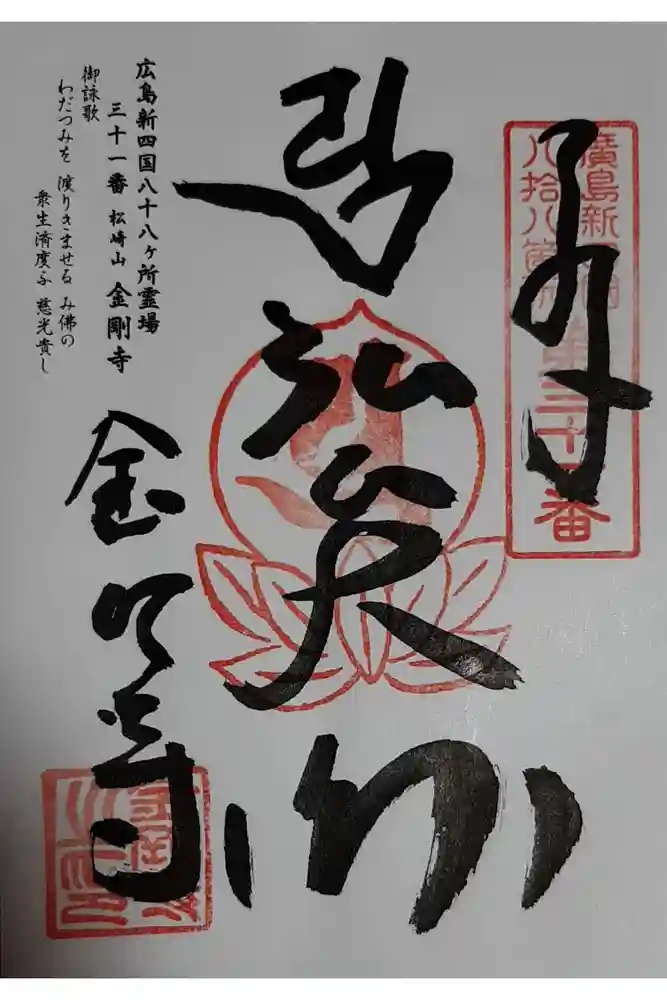 廣島新四國
八拾八箇所
第三十一番
弘法大師
広島新四国八十八ヶ所霊場
三十一番 松崎山 金剛寺
御詠歌
わだつみを 渡りきませる み佛の
衆生済度ふ 慈光貴し
金剛寺